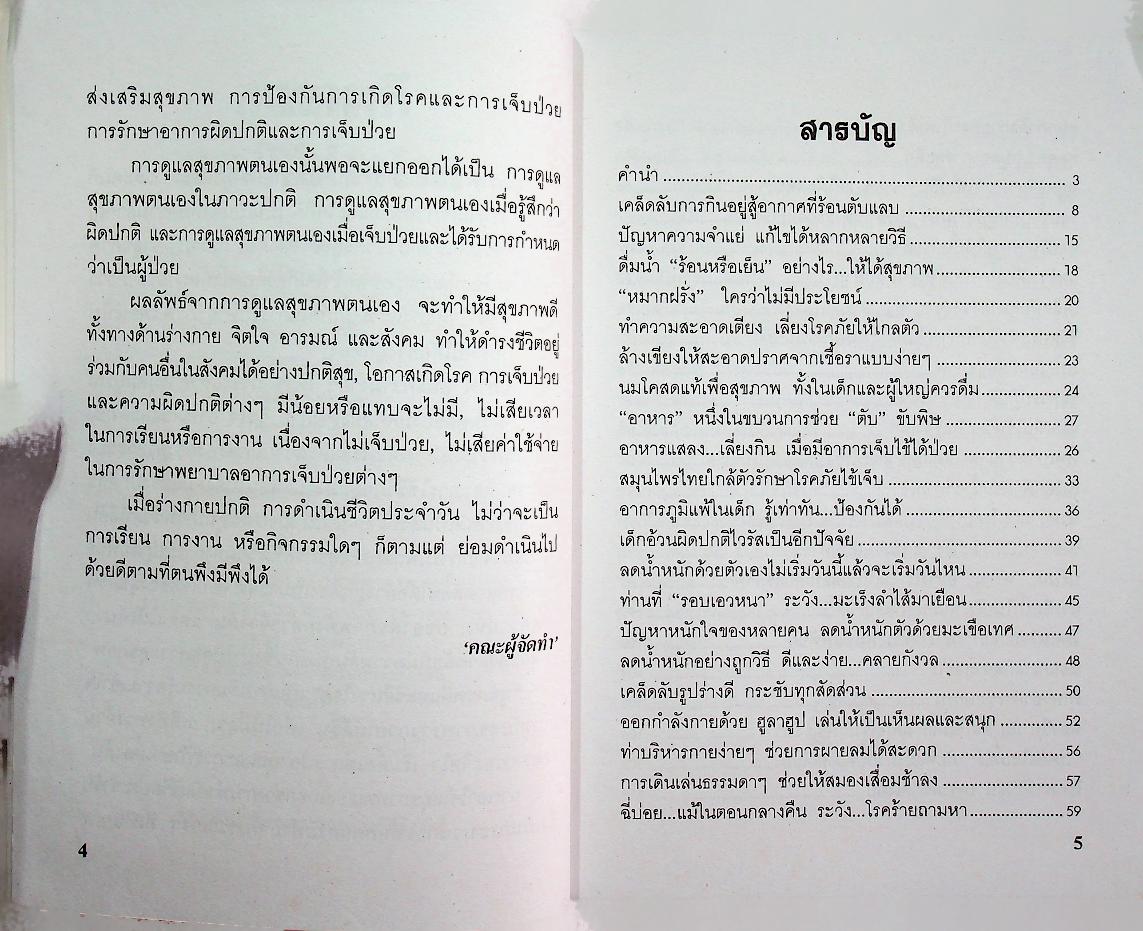 ส่งเสริมสุขภาพ การป้องกันการเกิดโรคและการเจ็บป่วย
การรักษาอาการผิดปกติและการเจ็บป่วย
การดูแลสุขภาพตนเองนั้นพอจะแยกออกได้เป็น การดูแล
สุขภาพตนเองในภาวะปกติ การดูแลสุขภาพตนเองเมื่อรู้สึกว่า
ผิดปกติ และการดูแลสุขภาพตนเองเมื่อเจ็บป่วยและได้รับการกำหนด
ว่าเป็นผู้ป่วย
ผลลัพธ์จากการดูแลสุขภาพตนเอง จะทำให้มีสุขภาพดี
ทั้งทางด้านร่างกาย จิตใจ อารมณ์ และสังคม ทำให้ดำรงชีวิตอยู่
ร่วมกับคนอื่นในสังคมได้อย่างปกติสุข, โอกาสเกิดโรค การเจ็บป่วย
และความผิดปกติต่างๆ มีน้อยหรือแทบจะไม่มี, ไม่เสียเวลา
ในการเรียนหรือการงาน เนื่องจากไม่เจ็บป่วย, ไม่เสียค่าใช้จ่าย
ในการรักษาพยาบาลอาการเจ็บป่วยต่างๆ
เมื่อร่างกายปกติ การดำเนินชีวิตประจำวัน ไม่ว่าจะเป็น
การเรียน การงาน หรือกิจกรรมใดๆ ก็ตามแต่ ย่อมดำเนินไป
ด้วยดีตามที่ตนพึงมีพึงได้
‘คณะผู้จัดทำ’
4
สารบัญ
คำนำ ........ 3
เคล็ดลับการกินอยู่สู้อากาศที่ร้อนตับแลบ ........ 8
ปัญหาความจำแย่ แก้ไขได้หลากหลายวิธี ........ 15
ดื่มน้ำ “ร้อนหรือเย็น” อย่างไร...ให้ได้สุขภาพ ........ 18
“หมากฝรั่ง” ใครว่าไม่มีประโยชน์ ........ 20
ทำความสะอาดเตียง เลี่ยงโรคภัยให้ไกลตัว ........ 21
ล้างเขียงให้สะอาดปราศจากเชื้อราแบบง่ายๆ ........ 23
นมโคสดแท้เพื่อสุขภาพ ทั้งในเด็กและผู้ใหญ่ควรดื่ม ........ 24
“อาหาร” หนึ่งในขบวนการช่วย “ตับ” ขับพิษ ........ 27
อาหารแสลง...เลี่ยงกิน เมื่อมีอาการเจ็บไข้ได้ป่วย ........ 26
สมุนไพรไทยใกล้ตัวรักษาโรคภัยไข้เจ็บ ........ 33
อาการภูมิแพ้ในเด็ก รู้เท่าทัน...ป้องกันได้ ........ 36
เด็กอ้วนผิดปกติไวรัสเป็นอีกปัจจัย ........ 39
ลดน้ำหนักด้วยตัวเองไม่เริ่มวันนี้แล้วจะเริ่มวันไหน ........ 41
ท่านที่ “รอบเอวหนา” ระวัง...มะเร็งลำไส้มาเยือน ........ 45
ปัญหาหนักใจของหลายคน ลดน้ำหนักตัวด้วยมะเขือเทศ ........ 47
ลดน้ำหนักอย่างถูกวิธี ดีและง่าย...คลายกังวล ........ 48
เคล็ดลับรูปร่างดี กระชับทุกสัดส่วน ........ 50
ออกกำลังกายด้วย ฮูลาฮูป เล่นให้เป็นเห็นผลและสนุก ........ 52
ท่าบริหารกายง่ายๆ ช่วยการผายลมได้สะดวก ........ 56
การเดินเล่นธรรมดาๆ ช่วยให้สมองเสื่อมช้าลง ........ 57
ฉี่บ่อย...แม้ในตอนกลางคืน ระวัง...โรคร้ายถามหา ........ 59
5